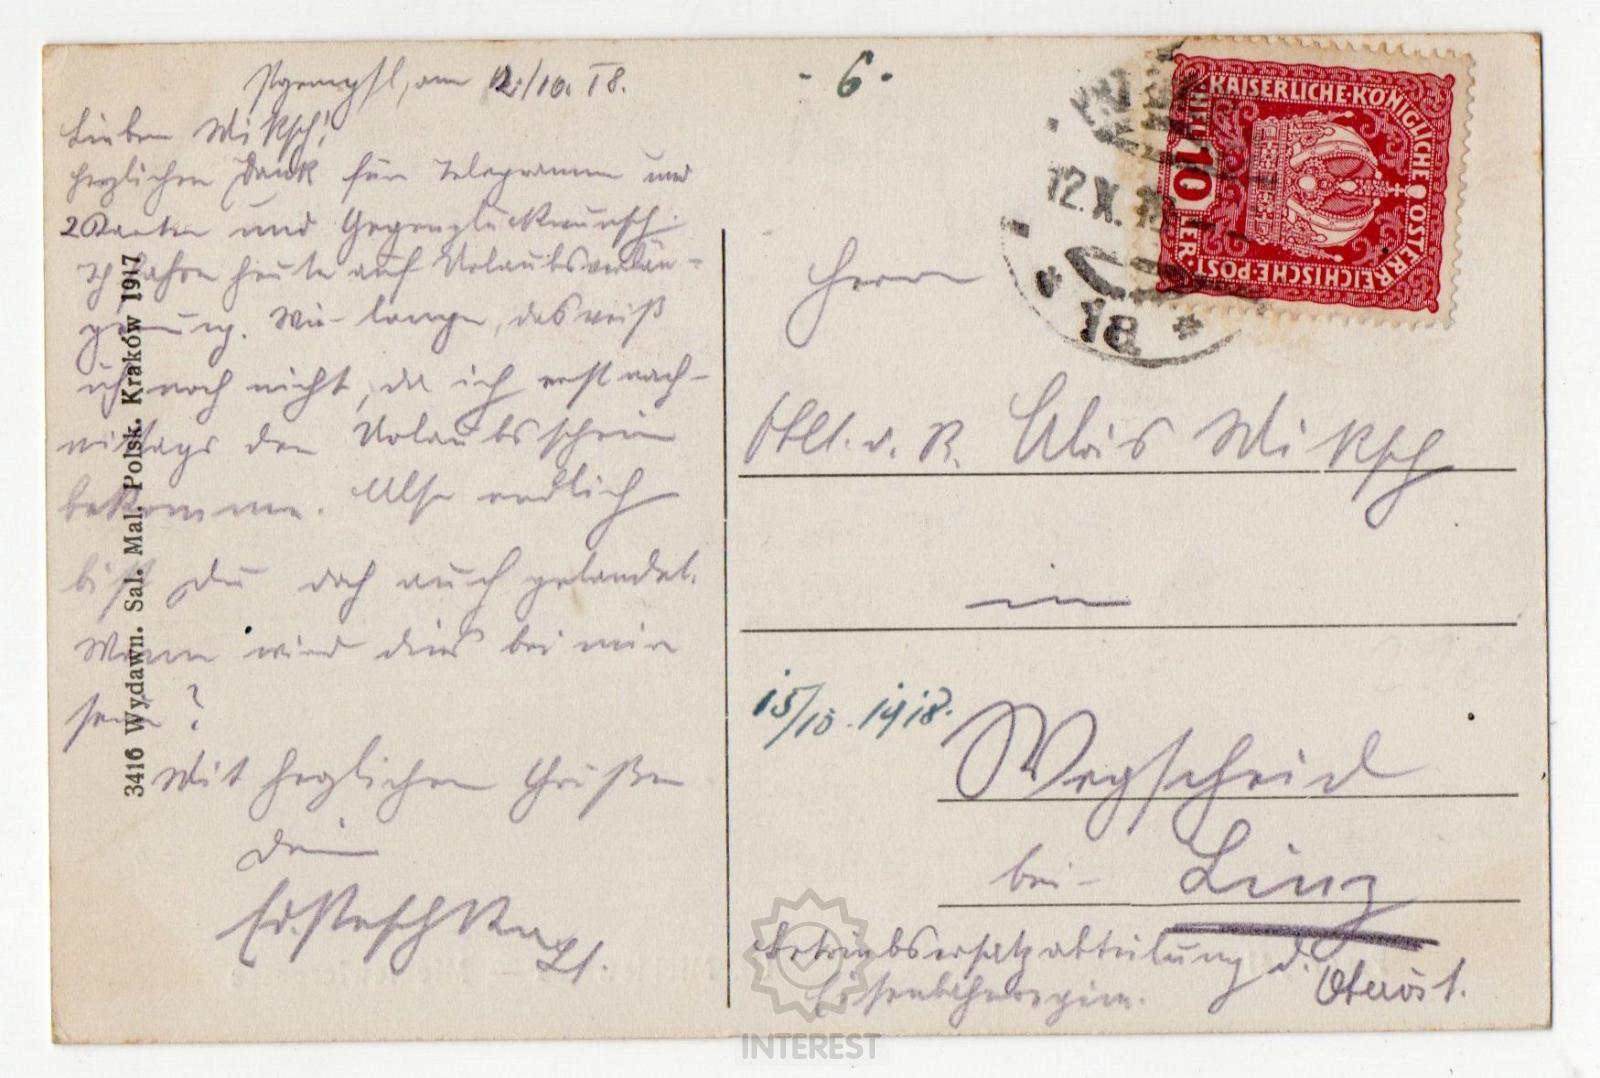 Przemysl, am 12./10. 18.
Lieber Miksch!
herzlichen Dank für Telegramm und
2 Karten und Gegenglückwunsch.
Ich fahre heute auf Urlaubsverlän-
gerung. Wie lange, das weiß
ich noch nicht, da ich erst nach-
mittags den Urlaubsschein
bekomme. Also endlich
bist Du doch auch gelandet.
Wann wird dies bei mir
sein?
Mit herzlichen Grüßen
Dein
3416 Wydawn. Sal. Mal. Polsk. Kraków 1917
- 6 -
KAISERLICHE KÖNIGLICHE ÖSTERREICHISCHE POST
10 HELLER
12.X.
* 18 *
Herrn
Oblt. d. R. Alois Miksch
in
15/10. 1918.
Wegscheid
bei Linz
Betriebsersatzabteilung d.
Eisenbahnregim. Oberöst.
INTEREST